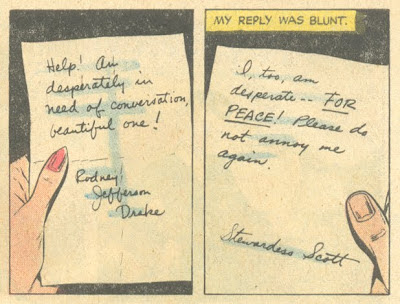 Help! Am
desperately in
need of conversation,
beautiful one!
Rodney
Jefferson
Drake
MY REPLY WAS BLUNT.
I, too, am
desperate-- FOR
PEACE! Please do
not annoy me
again.
Stewardess Scott